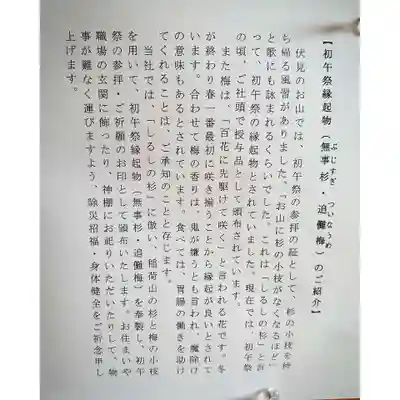 【初午祭縁起物（無事杉・追儺梅）のご紹介】
ぶじすぎ　ついなうめ
伏見のお山では、初午祭の参拝の証として、杉の小枝を持
ち帰る風習がありました。「お山に杉の小枝がなくなるほど」
と歌にも詠まれるくらいでした。これは「しるしの杉」と言
って、初午祭の縁起物とされていました。現在では、初午祭
の頃、ご社頭で授与品として頒布されています。
また梅は、「百花に先駆けて咲く」と言われる花です。冬
が終わり春一番最初に咲き揃うことから縁起が良いとされて
います。合わせて梅の香りは、鬼が嫌うとも言われ、魔除け
の意味もあるとされています。食べては、胃腸の働きを助け
てくれることは、ご承知のことと存じます。
当社では、「しるしの杉」に倣い、稲荷山の杉と梅の小枝
を用いて、初午祭縁起物（無事杉・追儺梅）を奉製し、初午
祭の参拝・ご祈願のお印として頒布いたします。お住まいや
職場の玄関に飾ったり、神棚にお祀りいただいたりして、物
事が難なく運びますよう、除災招福・身体健全をご祈念申し
上げます。